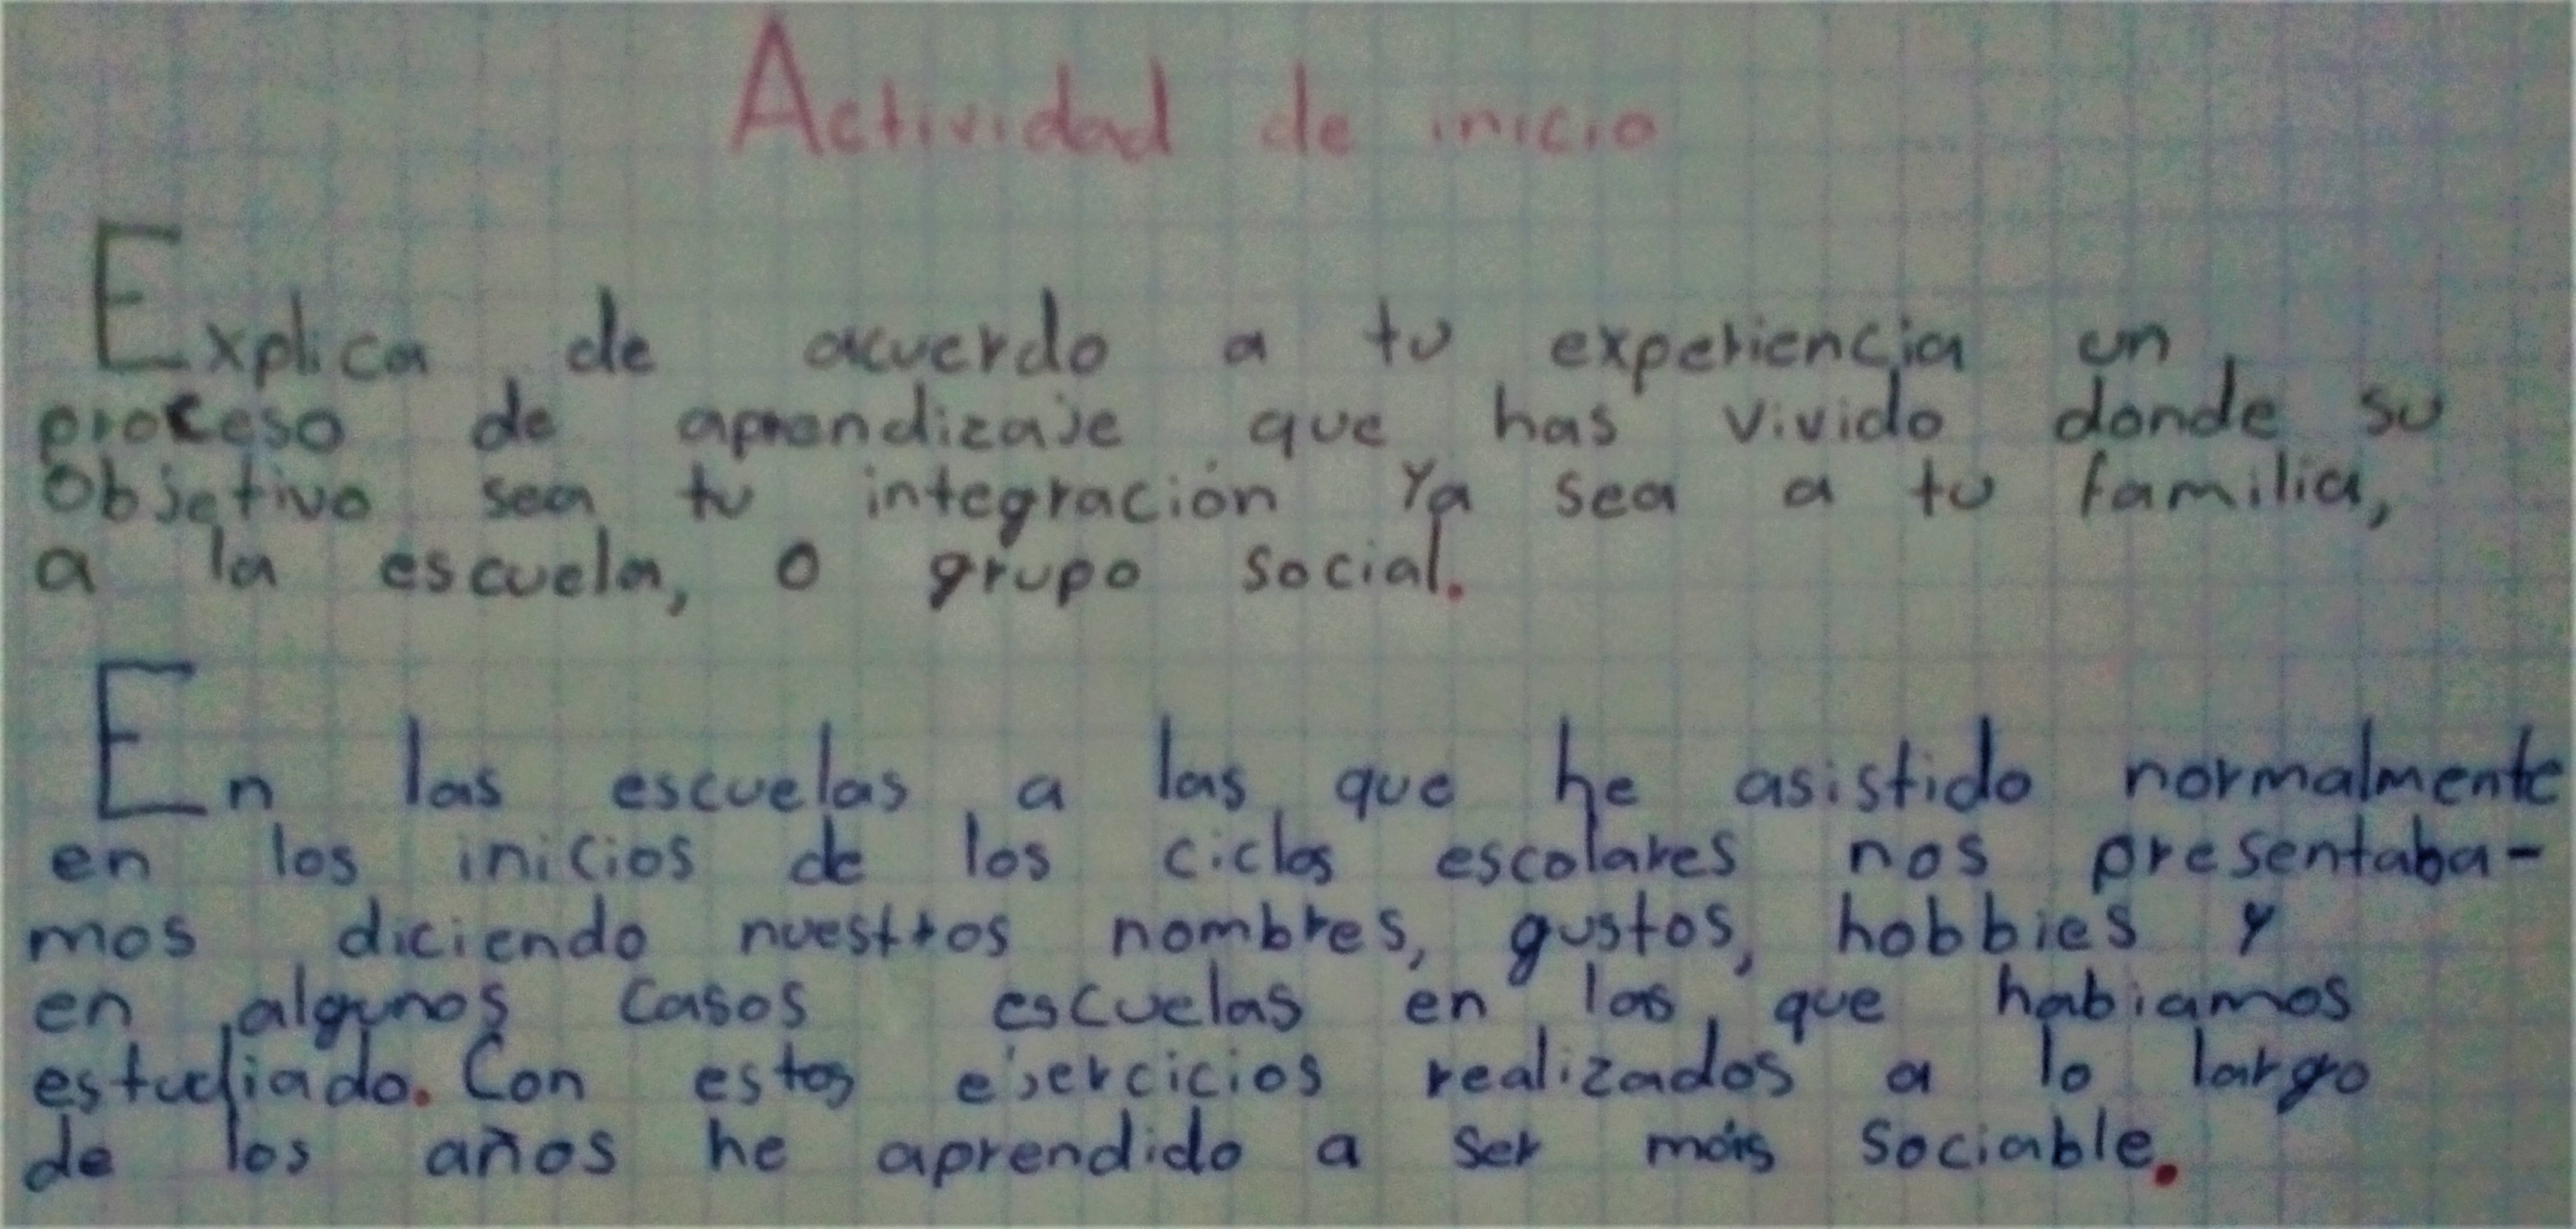 Actividad de inicio
Explica de acuerdo a tu experiencia un
proceso de aprendizaje que has vivido donde su
objetivo sea tu integración ya sea a tu familia,
a la escuela, o grupo social.
En las escuelas a las que he asistido normalmente
en los inicios de los ciclos escolares nos presentaba-
mos diciendo nuestros nombres, gustos, hobbies y
en algunos casos escuelas en las que habiamos
estudiado. Con estos ejercicios realizados a lo largo
de los años he aprendido a ser más sociable.